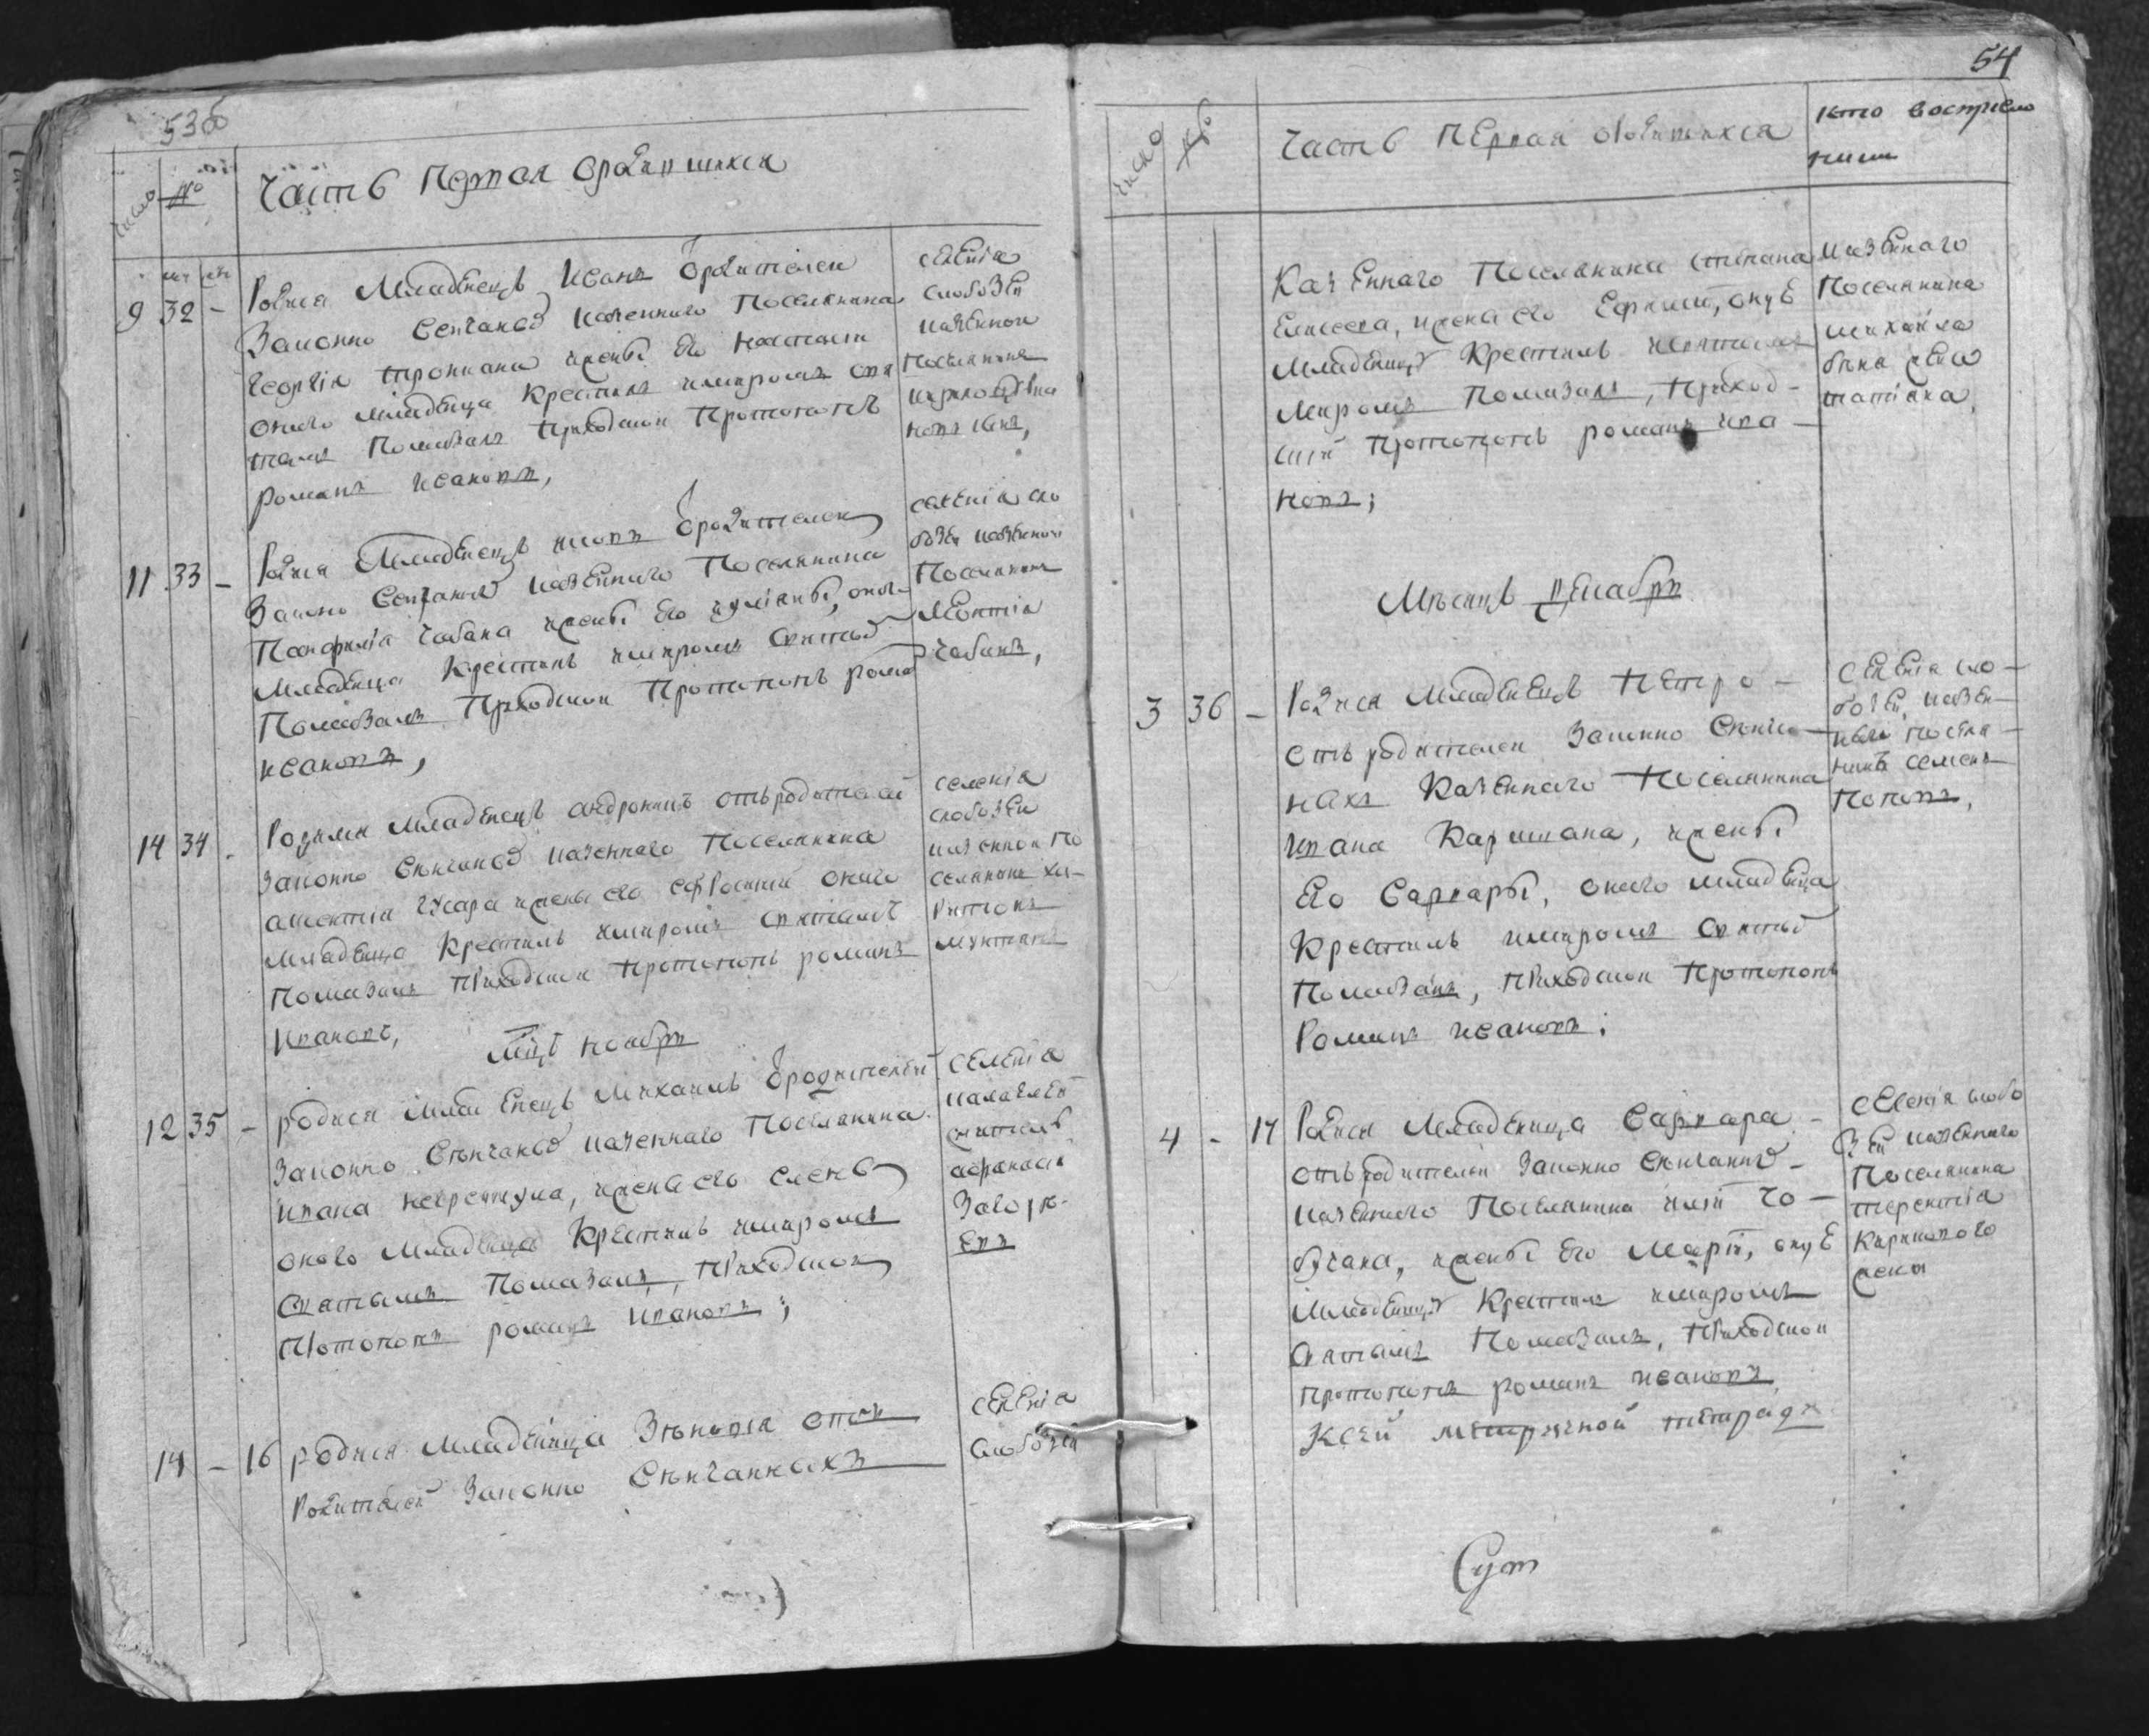 53об
число № Часть Первая ородившихся
мч жен
9 32 - Родися Младенецъ Иванъ Ѿродителей
Законно Венчаныхъ казеннаго Поселянина
Георгія Трояна жены его Настасіи
оного младенца Крестилъ имиромъ свя
тымъ Помазалъ Приходскои Протопопъ
Романъ ивановъ,
селенія
слободзеи
казеннои
Поселянинъ
11 33 - Родися Младенецъ Ѿродителей
Законно Венчаныхъ казеннаго Поселянина
Памфилія Чабана жены его иуліаны, оного
Младенца Крестилъ имиромъ святымъ
Помазалъ Приходскои Протопопъ Романъ
ивановъ,
селенія сло
бодзеи казеннои
Поселянинъ
Леонтіи
Чабанъ,
14 34 - Родился Младенецъ андроникъ отъродителей
Законно Венчаныхъ казеннаго Поселянина
жены его Ефросиніи оного
Младенца Крестилъ имиромъ святымъ
Помазалъ Приходскои Протопопъ романъ
Ивановъ,
селенія
слободзеи
казеннои По
селянинъ Ха-
ритонъ
мунтянъ
Мцъ Ноября
12 35 - родися Младенецъ Михаилъ Ѿродителей
Законно Венчаныхъ казеннаго Поселянина
ивана жены его Елены
оного Младенца Крестилъ имиромъ
Святымъ Помазалъ, Приходскои
Протопопъ романъ Ивановъ;
Селенія
житель
афанасіи
14 - 16 родися младеница Зѣновія отъ
Родителей Законно Венчанныхъ
Селенія
слободзеи
54
число № Часть Первая ородившихся
кто воспріем
ники
Казеннаго Поселянина Стефана
Елисеева, жены его Ефиміи, онуе
младеницу Крестилъ исвятымъ
Миромъ Помазалъ, Приход-
скіи Протопопъ романъ ива-
новъ;
Казеннаго
Поселянина
михаила
жена
татіана,
Мѣсяцъ Декабря
3 36 - Родися младенецъ Петро -
отъ родителей Законно Венча-
ныхъ Казеннаго Поселянина
ивана Каршана, жены
его Варвары, оного младенца
Крестилъ имиромъ святымъ
Помазалъ, Приходскои Протопопъ
Романъ ивановъ;
Селенія сло-
бодзеи, казен-
ныи поселя-
нинъ семенъ
Поповъ,
4 - 17 Родися Младеница Варвара -
отъродителей Законно Венчаныхъ -
казеннаго Поселянина иліи Чо-
бчана, жены его Маріи, онуе
Младеницу Крестилъ имиромъ
Святымъ Помазалъ, Приходскои
протопопъ романъ ивановъ,
Ксеи метричной тетради
Селенія слобо
дзеи казеннаго
Поселянина
терентія
жена